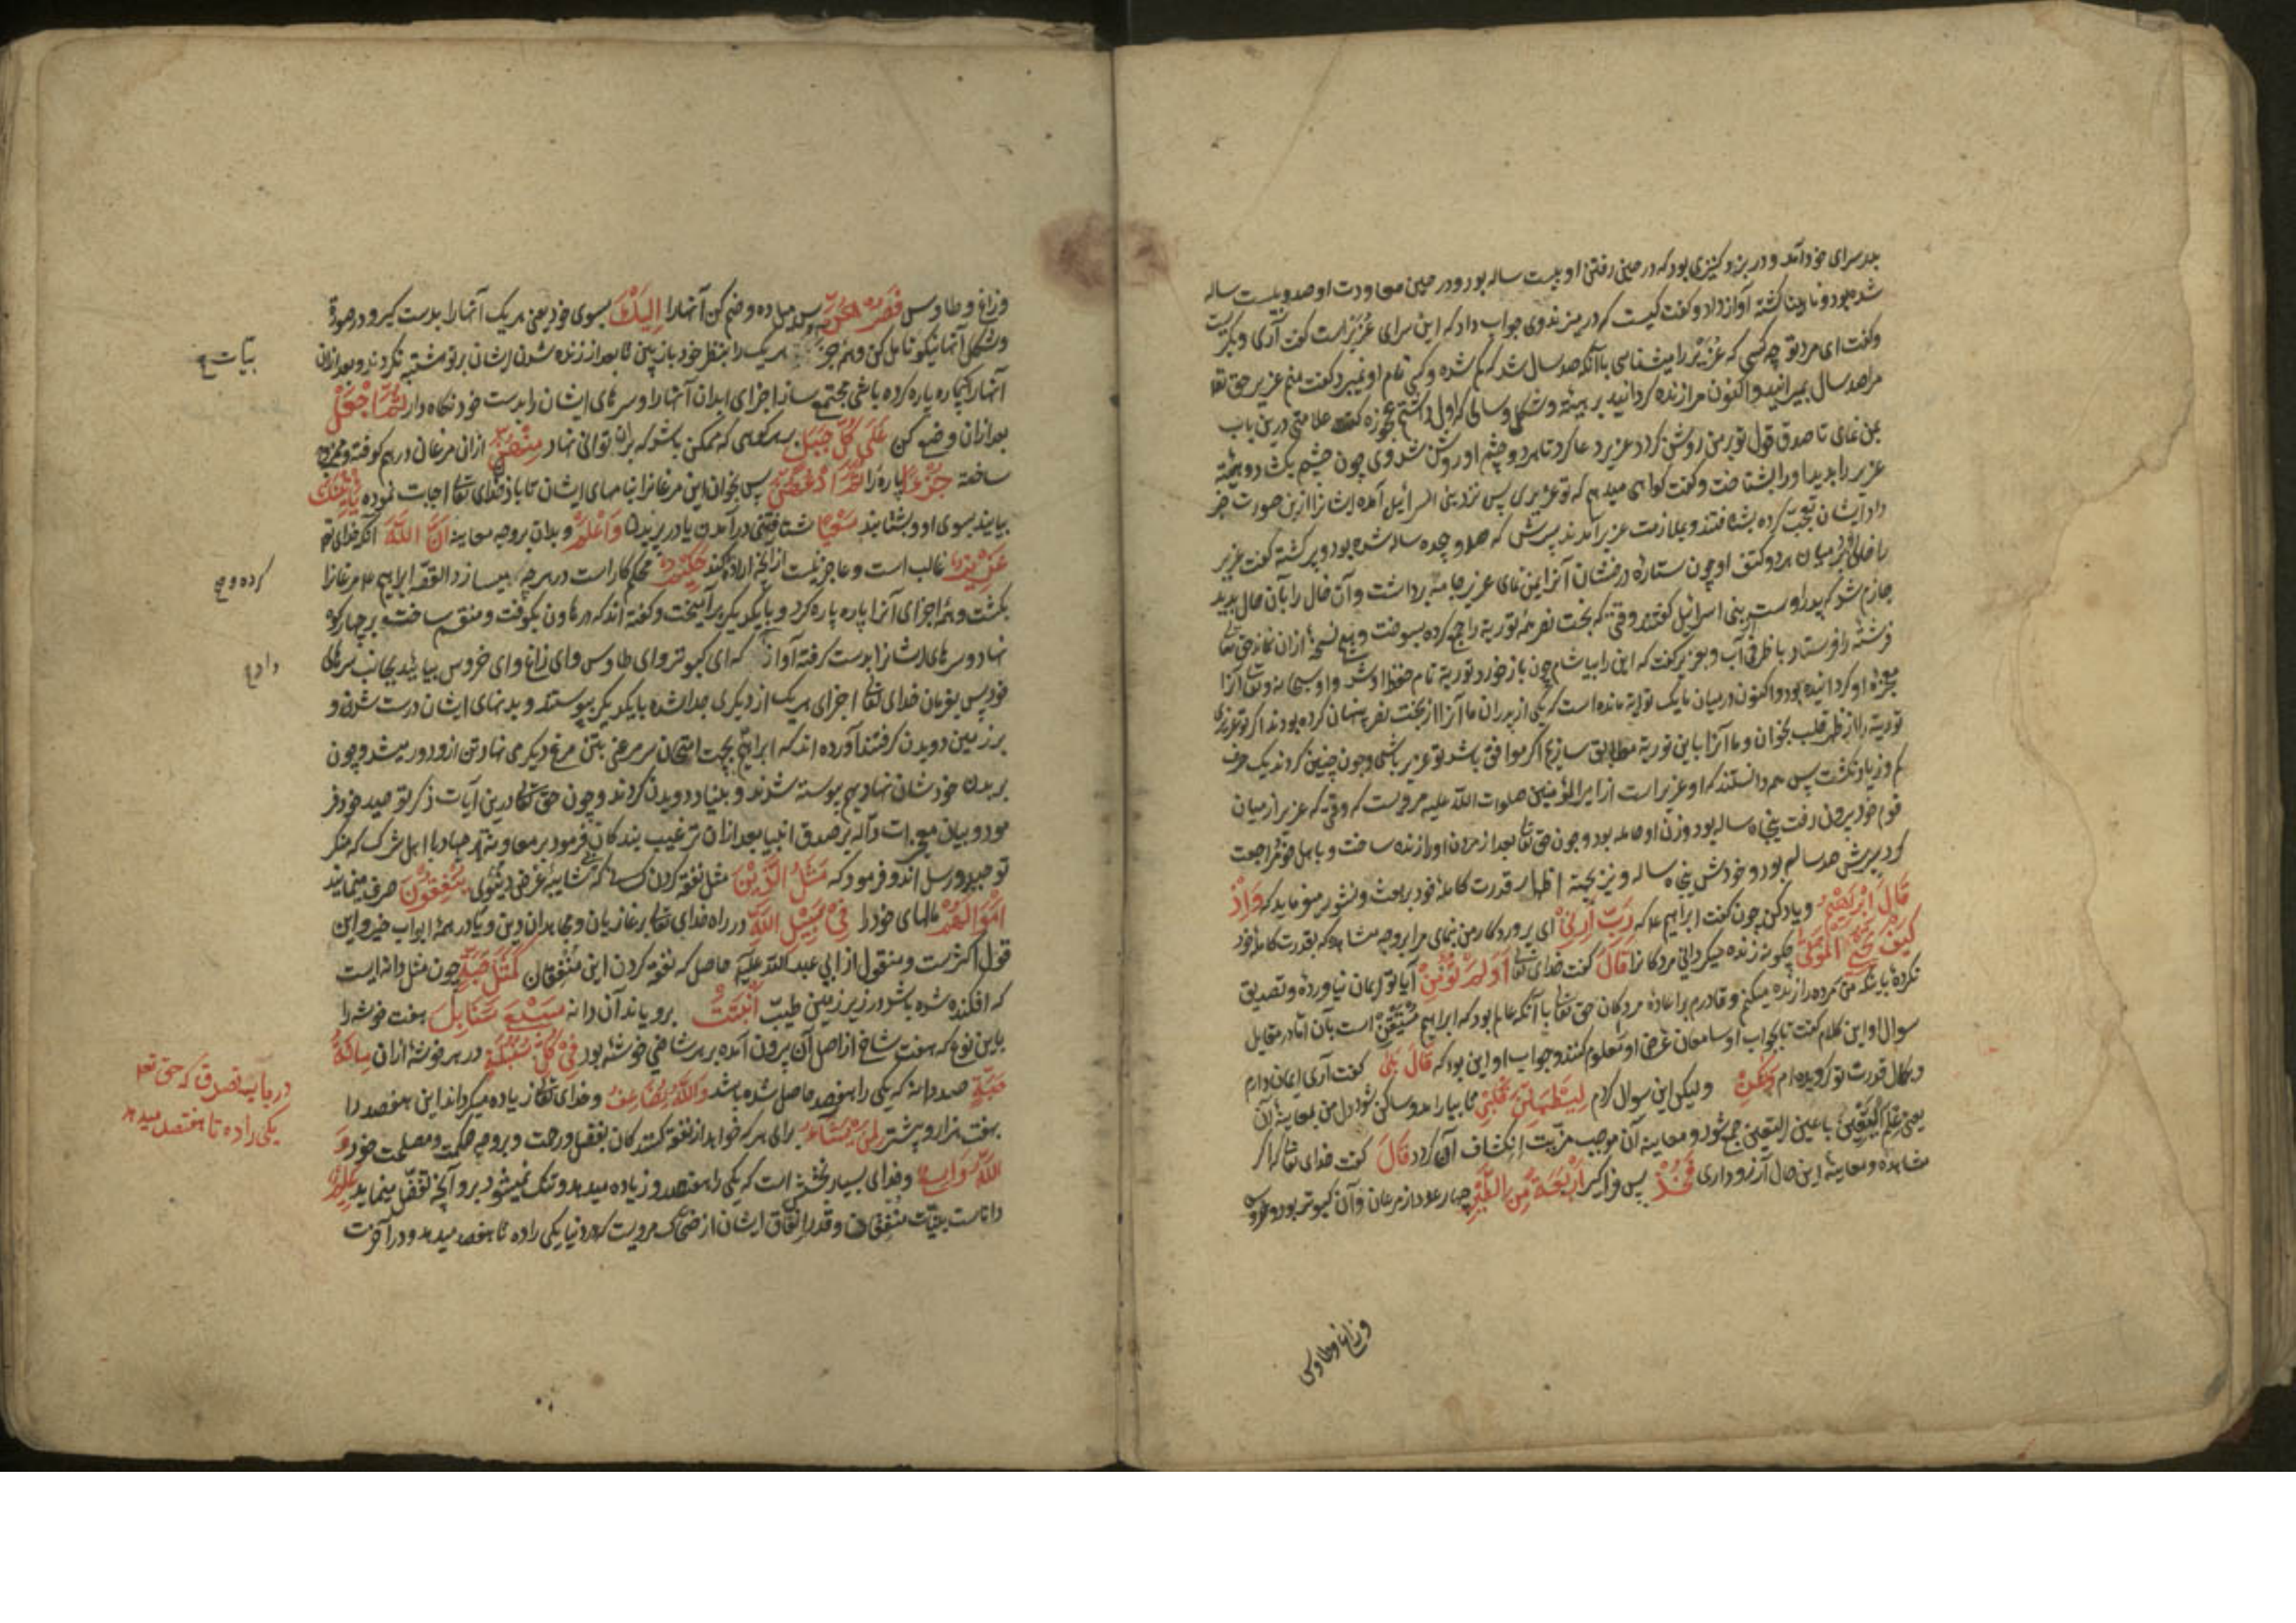 بدر سرای خود آمد و در بزد کنیزی بود که در حین رفتن او بیست ساله بود و در حین معاودت او صد و بیست ساله
شده بود و نابینا گشته آواز داد و گفت کیست که در میزند وی جواب داد که این سرای عُزَیْر است گفت آری و بگریست
و گفت ای مرد تو چه کسی که عُزَیْر را میشناسی با آنکه صد سال شد که گم شده و کسی نام او نمیبرد گفت منم عزیر حق تعا
مرا صد سال بمیرانید و اکنون مرا زنده گردانید بر هیئة و شکل و سالی که اول داشتم عجوزه گفت علامتی درین باب
بمن نمای تا صدق قول تو بر من روشن گردد عزیر دعا کرد تا هر دو چشم او روشن شد وی چون چشم بگشود
عزیر را بدید او را بشناخت و گفت گواهی میدهم که تو عزیری پس نزد بنی اسرائیل آمده ایشانرا ازین صورت خبر
داد ایشان تعجّب کرده بشتافتند و بملازمت عزیر آمدند پسرش که صد و هجده ساله شده بود و پیر گشته گفت عزیر
را خالی بود میان هر دو کتف او چون ستاره درخشان آنرا بمن نمای عزیر جامه برداشت و آن خال را بآن حال بدید
جازم شد که پدر اوست بنی اسرائیل گفتند وقتی که بخت نصر همهٔ توریة را جمع کرده بسوخت و هیچ نسخهٔ ازان نماند حق تعا
فرشتهٔ را فرستاد با ظرفی آب و بعزیر گفت که این را بیاشام چون باز خورد توریة تمام حفظ او شد و او سبحانه و تعا آنرا
معجزهٔ او گردانیده بود و اکنون درمیان ما یک توریة مانده است که یکی از پدران ما آنرا از بخت نصر پنهان کرده بودند اگر تو عزیری
توریة را از ظهر قلب بخوان و ما آنرا باین توریة مطابق سازیم اگر موافق باشد تو عزیر باشی و چون چنین کردند یک حرف
کم و زیاد نگشت پس همه دانستند که او عزیر است از امیر المؤمنین صلوات الله علیه مرویست که وقتی که عزیر از میان
قوم خود بیرون رفت پنجاه ساله بود و زن او حامله بود و چون حق تعا بعد از مردن او را زنده ساخت و باهل خود مراجعت
کرد پسرش صد ساله بود و خودش پنجاه ساله و نیز بجهة اظهار قدرت کاملهٔ خود بر بعث و نشور میفرماید که وَاِذْ
قَالَ اِبْرٰهٖیْمُ و یاد کن چون گفت ابراهیم ع که رَبِّ اَرِنِیْ ای پروردگار من بنمای مرا بروجه مشاهده که بقدرت کاملهٔ خود
کَیْفَ تُحْیِ الْمَوْتٰی چگونه زنده میگردانی مردگانرا قَالَ گفت خدای تعا اَوَلَمْ تُؤْمِنْ آیا تو ایمان نیاوردهٔ و تصدیق
نکردهٔ بآنکه من مرده را زنده میکنم و قادرم بر اعادهٔ مردگان حق تعا با آنکه عالم بود که ابراهیم مُتَیَقِّن است بآن اما در مقابل
سوال او این کلام گفت تا بجواب او سامعان غرض او معلوم کنند و جواب او این بود که قَالَ بَلٰی گفت آری ایمان دارم
و بکمال قدرت تو گرویده‌ام وَلٰکِنْ و لیکن این سوال کردم لِیَطْمَئِنَّ قَلْبِیْ تا بیارامد و ساکن شود دل من بمعاینهٔ آن
یعنی عِلْمُ الْیَقِیْن با عین الیقین جمع شود و معاینهٔ آن موجب مزیّت اِنکشاف آن گردد قَالَ گفت خدای تعا که اگر
مشاهده و معاینهٔ این حال آرزو داری فَخُذْ پس فرا گیر اَرْبَعَةً مِّنَ الطَّیْرِ چهار عدد از مرغان و آن کبوتر بود و خروس
و زاغ و طاوس
و زاغ و طاوس فَصُرْهُنَّ پس میل ده و ضم کن آنها را اِلَیْكَ بسوی خود یعنی هر یک آنها را بدست گیر و در صورة
و شکل آنها نیکو تامل کن و همهٔ جز هر یک را بنظر خود باز بین تا بعد از زنده شدن ایشان بر تو مشتبه نگردند و بعد ازان
آنها را پاره پاره کرده باشی مجتمع ساز اجزای ابدان آنها را و سرهای ایشان را بدست خود نگاه دار ثُمَّ اجْعَلْ
بعد ازان وضع کن عَلٰی کُلِّ جَبَلٍ بر هر کوهی که ممکن باشد که بران توانی نهاد مِنْهُنَّ ازان مرغان در هم کوفته و ممزوج
ساخته جُزْءًا پارهٔ را ثُمَّ ادْعُهُنَّ پس بخوان این مرغانرا بنامهای ایشان تا باذن خدای تعا اجابت نموده یَأْتِیْنَكَ
بیایند بسوی او و بشتابند سَعْیًا شتافتنی در آمدن یا در پریدن وَاعْلَمْ و بدان بروجه معاینه اَنَّ اللّٰهَ آنکه خدای تعا
عَزِیْزٌ غالب است و عاجز نیست از آنچه اراده کند حَکِیْمٌ محکم کار است در هر چه میسازد القصّه ابراهیم ع مرغانرا
بکشت و همهٔ اجزای آنرا پاره پاره کرد و با یکدیگر برآمیخت و گفته اند که در هاون بکوفت و منقسم ساخت و بر چهار کوه
نهاد و سرهای ایشانرا بدست گرفته آواز که ای کبوتر و ای طاوس و ای زاغ و ای خروس بیایید بجانب سرهای
خود پس بفرمان خدای تعا اجزای هر یک از دیگری جدا شده با یکدیگر پیوستند و بدنهای ایشان درست شدن و
بر زمین دویدن گرفتند آورده اند که ابراهیم بجهت امتحان سر مرغی بتن مرغ دیگری می نهاد تن ازو دور میشد و چون
ببدن خودشان نهاد بهم پیوسته شدند و بنیاد دویدن کردند و چون حق تعا درین آیات ذکر توحید خود فر
مود و بیان معجزات داله بر صدق انبیا بعد ازان ترغیب بندگان فرمود بر معاونة در جهاد با اهل شرک که منکر
توحید و رسل اند و فرمود که مَثَلُ الَّذِیْنَ مثل نفقه کردن کسانی که بی شایبهٔ غرض دنیوی یُنْفِقُوْنَ صرف مینمایند
اَمْوَالَهُمْ مالهای خود را فِیْ سَبِیْلِ اللّٰهِ در راه خدای تعا بر غازیان و مجاهدان دین و یا در همهٔ ابواب خیر و این
قول اکثر است و منقول از ابی عبد الله علیه حاصل که نفقه کردن این مُنْفِقان کَمَثَلِ حَبَّةٍ چون مثل دانه ایست
که افکنده شده باشد در زیر زمین طیّب اَنْبَتَتْ برویاند آن دانه سَبْعَ سَنَابِلَ هفت خوشه را
باین نوع که هفت شاخ از اصل آن بیرون آمده بر هر شاخی خوشهٔ بود فِیْ کُلِّ سُنْبُلَةٍ در هر خوشهٔ ازان مِائَةُ
حَبَّةٍ صد دانه که یکی را هفتصد حاصل شده باشد وَاللّٰهُ یُضَاعِفُ و خدای تعا زیاده میگرداند این هفتصد را
بهفت هزار و بیشتر لِمَنْ یَّشَاءُ برای هر که خواهد از نفقه کنندگان بفضل و رحمت و بر وجه حکمت و مصلحت خود وَ
اللّٰهُ وَاسِعٌ و خدای بسیار بخشش است که یکی را هفتصد و زیاده میدهد و تنگ نمیشود برو آنچه تفضّل مینماید عَلِیْمٌ
داناست بنیّات مُنْفِقان و قدر اِنفاق ایشان از ضحّاک مرویست که در دنیا یکی را ده تا هفتصد میدهد و در آخرت
کرده و
داد
در باب تصدق که حق تعا
یکی را ده تا هفتصد میدهد